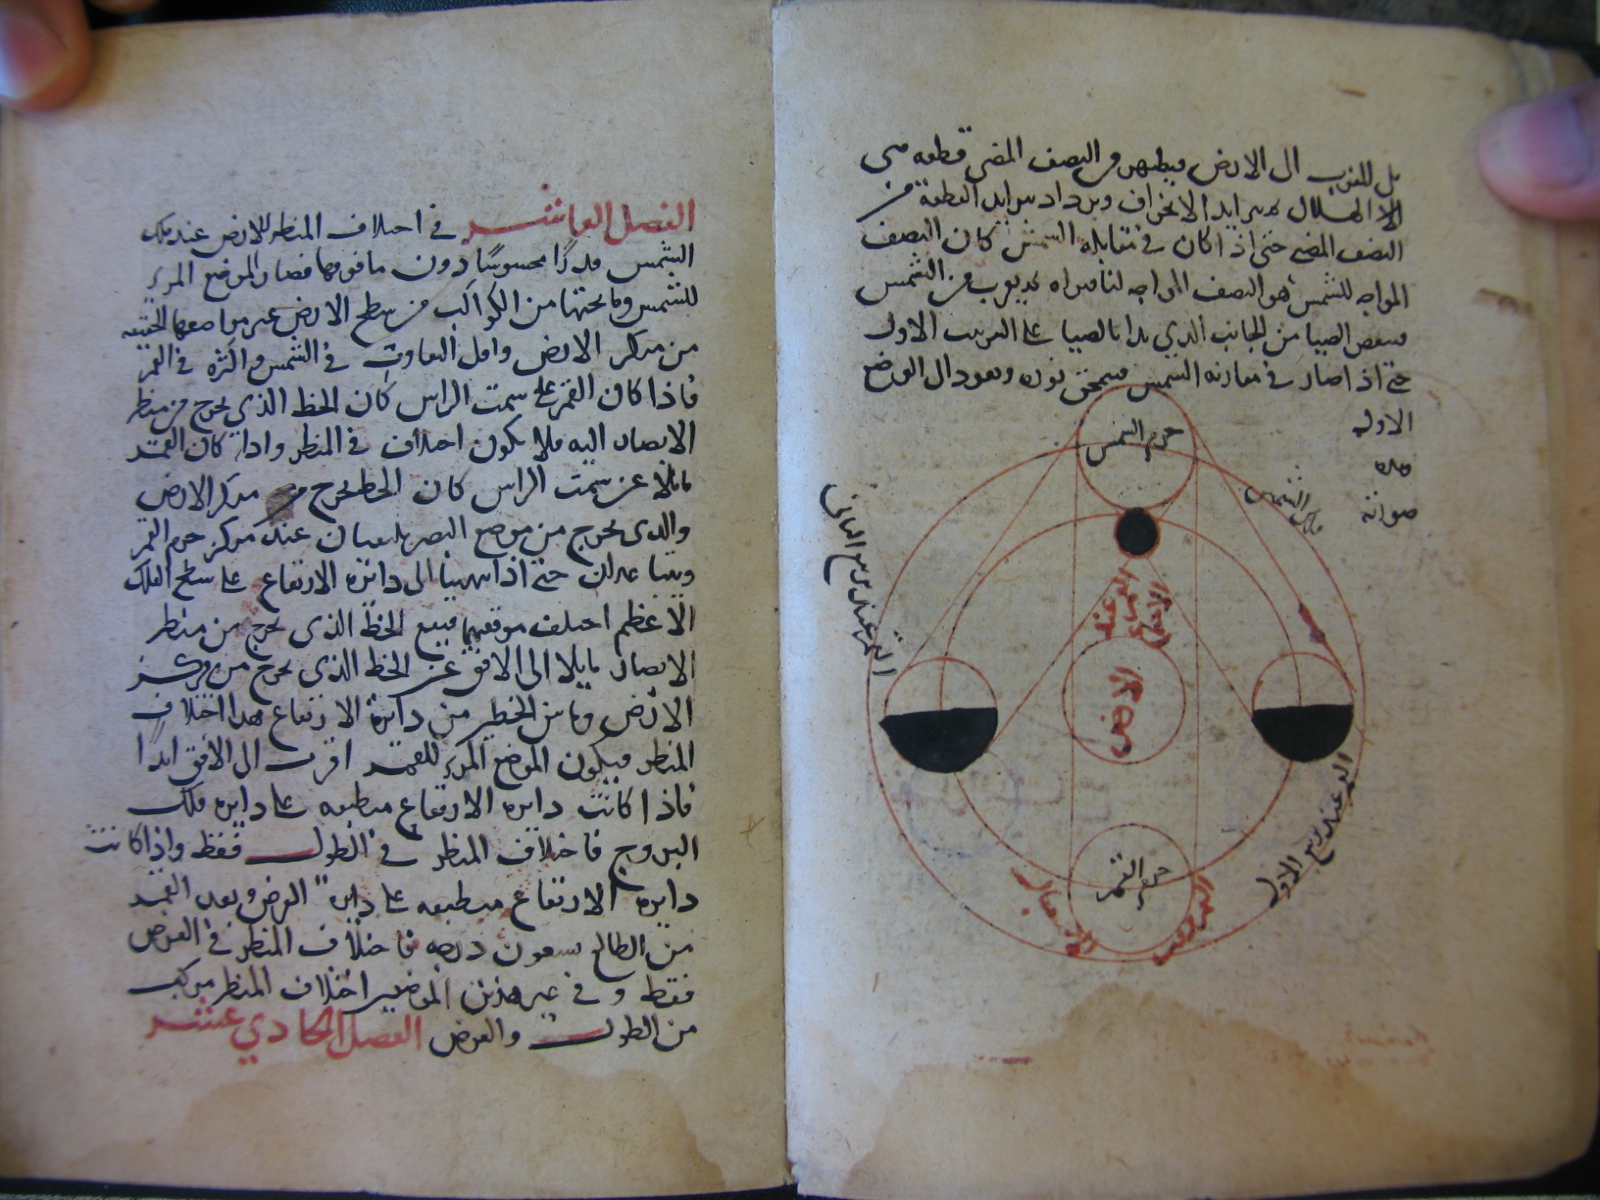 بل للقرب الى الارض فيظهر من النصف المضي قطعه هي
الا الهلال ثم يتزايد الانحراف ويزداد بتزايد القطعة من
النصف المضي حتى اذا كان في مقابله الشمس كان النصف
المواجه للشمس هو النصف المواجه لنا فنراه ثم يقرب من الشمس
فينقص الضيا من الجانب الذي بدا بالضيا على الترتيب الاول
حتى اذا صار في مقارنه الشمس فينمحق نوره ويعود الى الوضع
الاول
وهذه
صورته
جرم الشمس
فلك الشمس
القمر عند الاجتماع
الارض
القمر عند تربيع الثاني
القمر عند تربيع الاول
جرم القمر
القمر عند
الاستقبال
الفصل العاشر في اختلاف المنظر للارض عند فلك
الشمس قدرًا محسوسًا دون ما فوقها فصار الموضع المرئي
للشمس وما تحتها من الكواكب من سطح الارض غير مواضعها الحقيقيه
من مركز الارض واقل التفاوت في الشمس واكثره في القمر
فاذا كان القمر على سمت الراس كان الخط الذي يخرج من منظر
الابصار اليه فلا يكون اختلاف في المنظر واذا كان القمر
مايلا عن سمت الراس كان الخط يخرج من مركز الارض
والذي يخرج من موضع البصر يلتقيان عند مركز جرم القمر
ويتباعدان حتى اذا انتهيا الى دائره الارتفاع على سطح الفلك
الاعظم اختلف موقعهما فيقع الخط الذي يخرج من منظر
الابصار مايلا الى الافق عن الخط الذي يخرج من مركز
الارض وما بين الخطين من دائرة الارتفاع هذا اختلاف
المنظر فيكون الموضع المرئي للقمر اقرب الى الافق ابدًا
فاذا كانت دايره الارتفاع منطبقه على دايره فلك
البروج فاختلاف المنظر في الطول فقط واذا كانت
دايره الارتفاع منطبقه على دايرة العرض وبعد القمر
من الطالع تسعون درجه فاختلاف المنظر في العرض
فقط و في غير هذين الموضعين اختلاف المنظر مركب
من الطول والعرض الفصل الحادي عشر